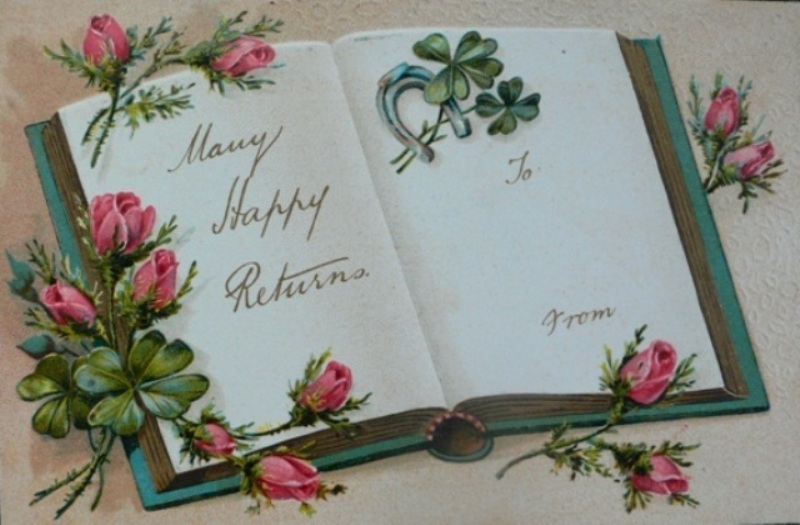 Many
Happy
Returns.
To
From